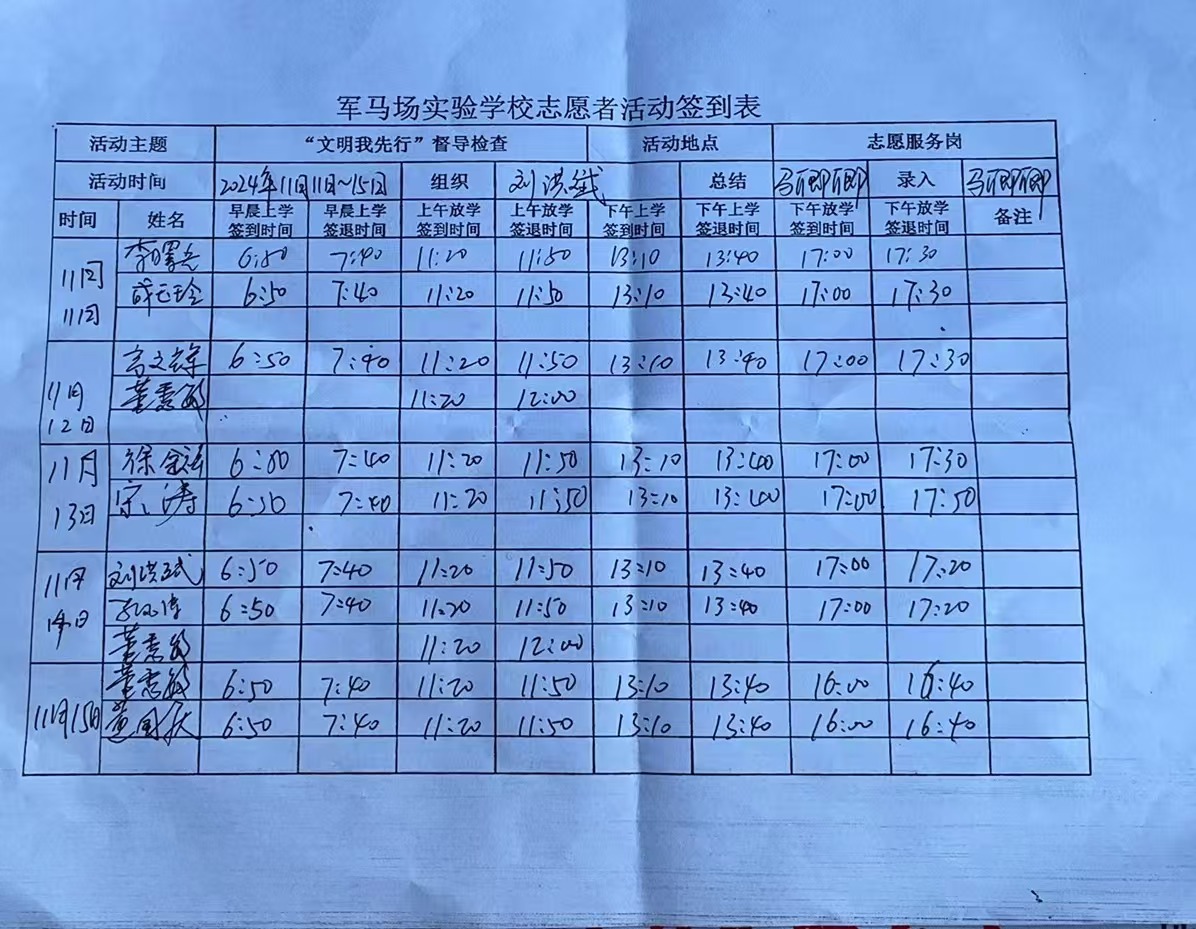 军马场实验学校志愿者活动签到表
活动主题 “文明我先行”督导检查 活动地点 志愿服务岗
活动时间 2024年11月11日~15日 组织 刘洪斌 总结 录入
时间 姓名 早晨上学签到时间 早晨上学签退时间 上午放学签到时间 上午放学签退时间 下午上学签到时间 下午上学签退时间 下午放学签到时间 下午放学签退时间 备注
11月11日 6:50 7:40 11:20 11:50 13:10 13:40 17:00 17:30
6:50 7:40 11:20 11:50 13:10 13:40 17:00 17:30
11月12日 6:50 7:40 11:20 11:50 13:10 13:40 17:00 17:30
董秀敏 11:20 12:00
11月13日 7:40 11:20 11:50 13:10 13:40 17:00 17:30
宋涛 7:40 11:20 11:50 13:10 13:40 17:00 17:50
11月14日 6:50 7:40 11:20 11:50 13:10 13:40 17:00 17:20
6:50 7:40 11:20 11:50 13:10 13:40 17:00 17:20
董秀敏 11:20 12:00
11月15日 董秀敏 6:50 7:40 11:20 11:50 13:10 13:40 16:00 16:40
6:50 7:40 11:20 11:50 13:10 13:40 16:00 16:40